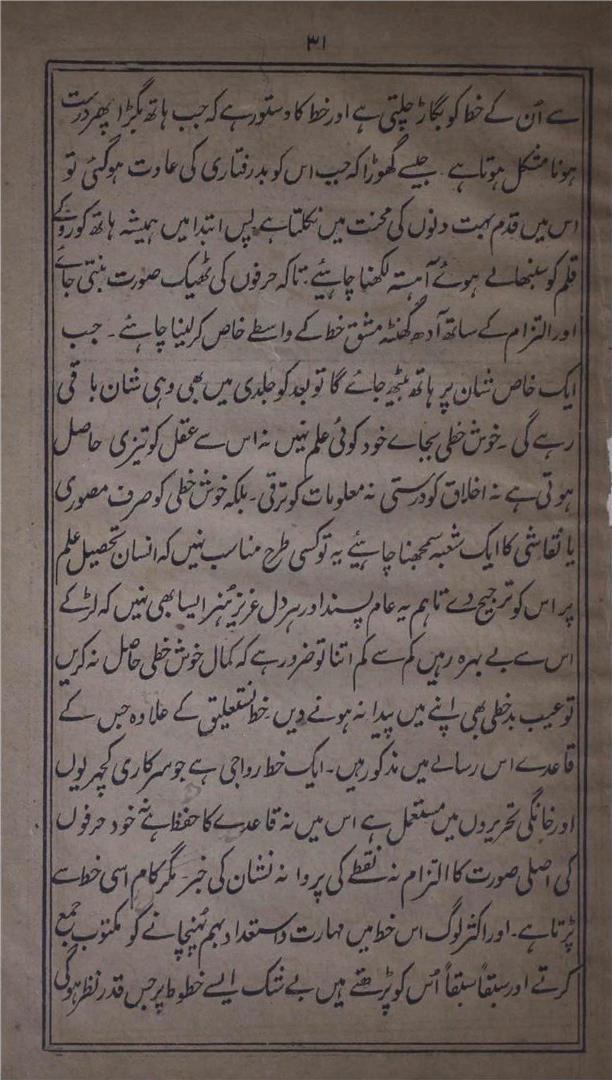 ۳۱
سے اُن کے خط کو بگاڑ چلتی ہے اور خط کا دستور ہے کہ جب ہاتھ بگڑا پھر درست
ہونا مشکل ہوتا ہے ۔ جیسے گھوڑا کہ جب اس کو بدرفتاری کی عادت ہوگئی تو
اس میں قدم بہت دنوں کی محنت میں نکلتا ہے پس ابتدا میں ہمیشہ ہاتھ کو روکے
قلم کو سنبھالے ہوئے آہستہ لکھنا چاہیئے ۔ تاکہ حرفوں کی ٹھیک صورت بنتی جائے
اور التزام کے ساتھ آدھ گھنٹہ مشق خط کے واسطے خاص کرلینا چاہئے ۔ جب
ایک خاص شان پر ہاتھ بیٹھ جائے گا تو بعد کو جلدی میں بھی وہی شان باقی
رہے گی ۔ خوش خطی بجاے خود کوئی علم نہیں نہ اس سے عقل کو تیزی حاصل
ہوتی ہے نہ اخلاق کو درستی نہ معلومات کو ترقی ۔ بلکہ خوش خطی کو صرف مصوری
یا نقاشی کا ایک شعبہ سمجھنا چاہیئے یہ تو کسی طرح مناسب نہیں کہ انسان تحصیل علم
پر اس کو ترجیح دے تاہم یہ عام پسند اور ہر دل عزیز ہُنر ایسا بھی نہیں کہ لڑکے
اس سے بے بہرہ رہیں کم سے کم اتنا تو ضرور ہے کہ کمال خوش خطی حاصل نہ کریں
تو عیب بدخطی بھی اپنے میں پیدا نہ ہونے دیں خط نستعلیق کے علاوہ جس کے
قاعدے اس رسالے میں مذکور ہیں ۔ ایک خط رواجی ہے جو سرکاری کچہریوں
اور خانگی تحریروں میں مستعمل ہے اس میں نہ قاعدے کا حفظ ہے نہ خود حرفوں
کی اصلی صورت کا التزام نہ نقطے کی پروا نہ نشان کی خبر ۔ مگر کام اسی خط سے
پڑتا ہے ۔ اور اکثر لوگ اس خط میں مہارت و استعداد بہم پُہنچانے کو مکتوب جمع
کرتے اور سبقاً سبقاً اُس کو پڑھتے ہیں بے شک ایسے خطوط پر جس قدر نظر ہوگی